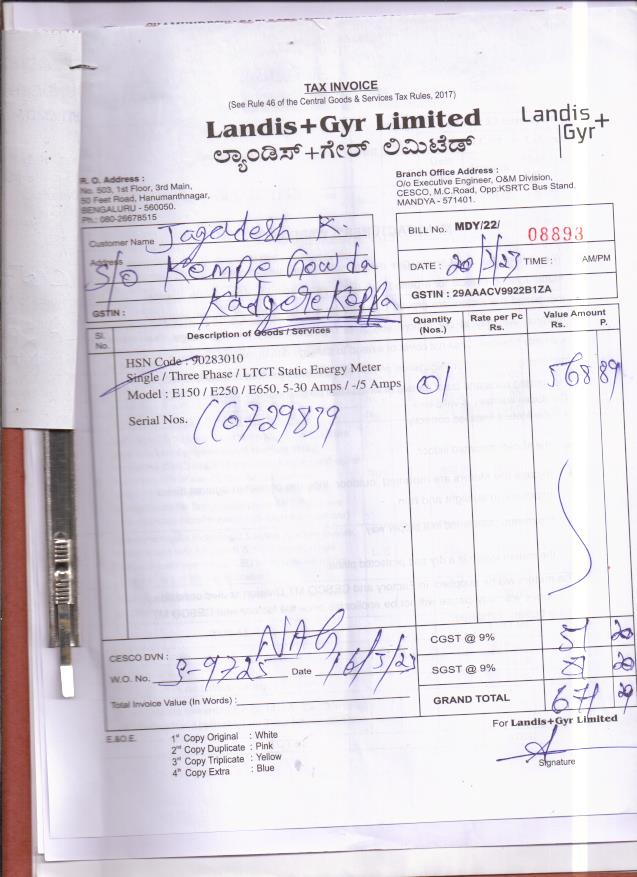 TAX INVOICE
(See Rule 46 of the Central Goods & Services Tax Rules, 2017)
Landis+Gyr Limited
ಲ್ಯಾಂಡಿಸ್+ಗೇರ್ ಲಿಮಿಟೆಡ್
Landis
Gyr+
R. O. Address :
No. 503, 1st Floor, 3rd Main,
50 Feet Road, Hanumanthnagar,
BENGALURU - 560050.
Ph.: 080-26678515
Branch Office Address :
O/o Executive Engineer, O&M Division,
CESCO, M.C.Road, Opp:KSRTC Bus Stand.
MANDYA - 571401.
Customer Name Jagadesh K.
Address S/o Kempe Gowda
Kadgere Koppa
GSTIN :
BILL No. MDY/22/ 08893
DATE : 20/3/23 TIME : AM/PM
GSTIN : 29AAACV9922B1ZA
Sl. No. Description of Goods / Services Quantity (Nos.) Rate per Pc Rs. Value Amount Rs. P.
HSN Code : 90283010
Single / Three Phase / LTCT Static Energy Meter
Model : E150 / E250 / E650, 5-30 Amps / -/5 Amps 01 568 89
Serial Nos.
CESCO DVN : NAG
W.O. No. Date 16/3/23
Total Invoice Value (In Words) :
CGST @ 9% 51 20
SGST @ 9% 20
GRAND TOTAL 671 29
E.&O.E.
1st Copy Original : White
2nd Copy Duplicate : Pink
3rd Copy Triplicate : Yellow
4th Copy Extra : Blue
For Landis+Gyr Limited
Signature